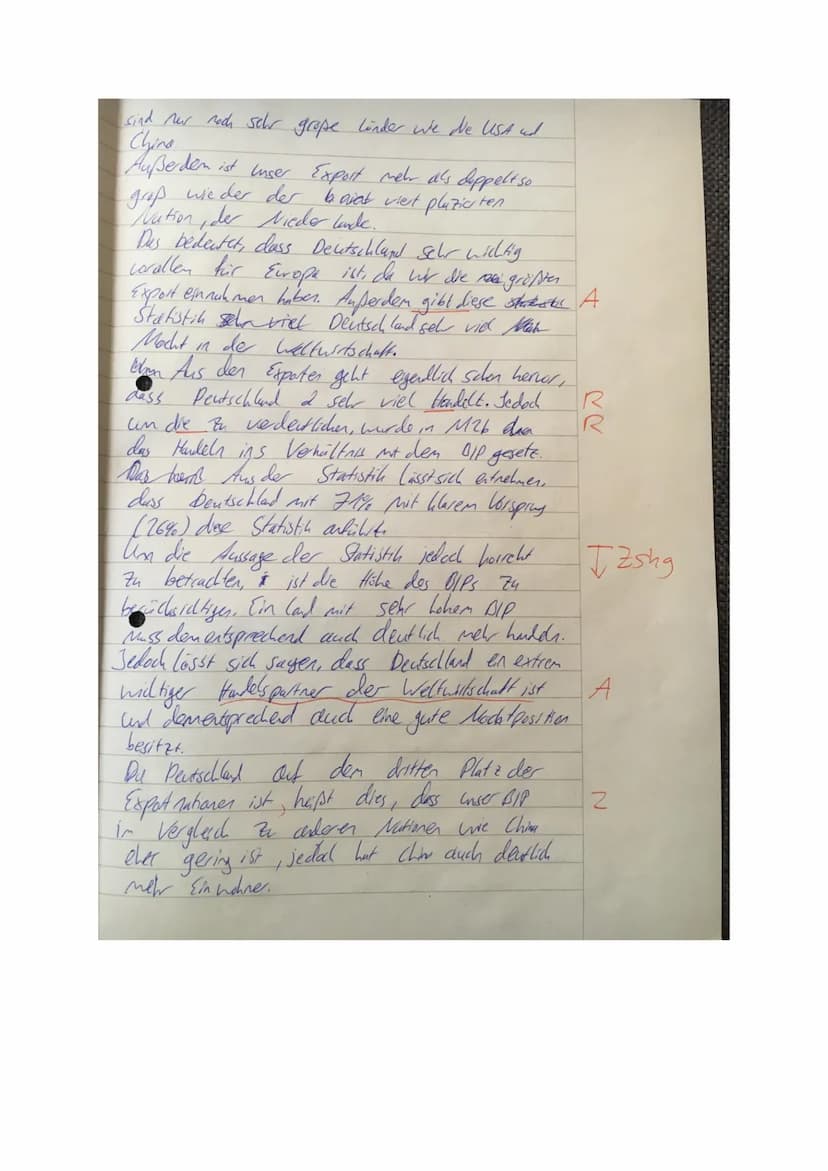 sind nur noch sehr große Länder wie die USA und
China.
Außerdem ist unser Export mehr als doppelt so
groß wie der der viert plazierten
Nation, der Niederlande.
Das bedeutet, dass Deutschland sehr wichtig
vorallem für Europa ist, da wir die größten
Exporteinnahmen haben. Außerdem gibt diese A
Statistik sehr viel Deutschland sehr viel
Macht in der Weltwirtschaft.
Aus den Exporten geht eigentlich schon hervor,
dass Deutschland sehr viel Handelt. Jedoch R
um die zu verdeutlichen, wurde in M2b R
das Handeln ins Verhältnis mit dem BIP gesetz.
Das heißt Aus der Statistik lässt sich entnehmen,
dass Deutschland mit 71% mit klarem Vorsprung
(26%) die Statistik anführt.
Um die Aussage der Statistik jedoch korrekt Zshg
zu betrachten, ist die Höhe des BIPs zu
berücksichtigen. Ein Land mit sehr hohem BIP
muss dementsprechend auch deutlich mehr handeln.
Jedoch lässt sich sagen, dass Deutschland en extrem
wichtiger Handelspartner der Weltwirtschaft ist A
und dementsprechend auch eine gute Machtposition
besitzt.
Da Deutschland auf dem dritten Platz der
Exportnationen ist, heißt dies, dass unser BIP Z
im Vergleich zu anderen Nationen wie China
eher gering ist, jedoch hat China auch deutlich
mehr Einwohner.